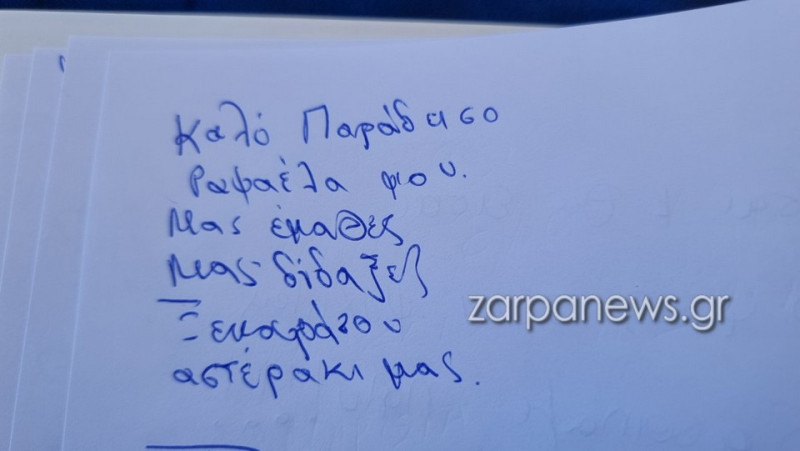 Καλό Παράδεισο
Ραφαέλα μου.
Μας έμαθες
Μας δίδαξες
Ξεκουράσου
αστέράκι μας.
zarpanews.gr